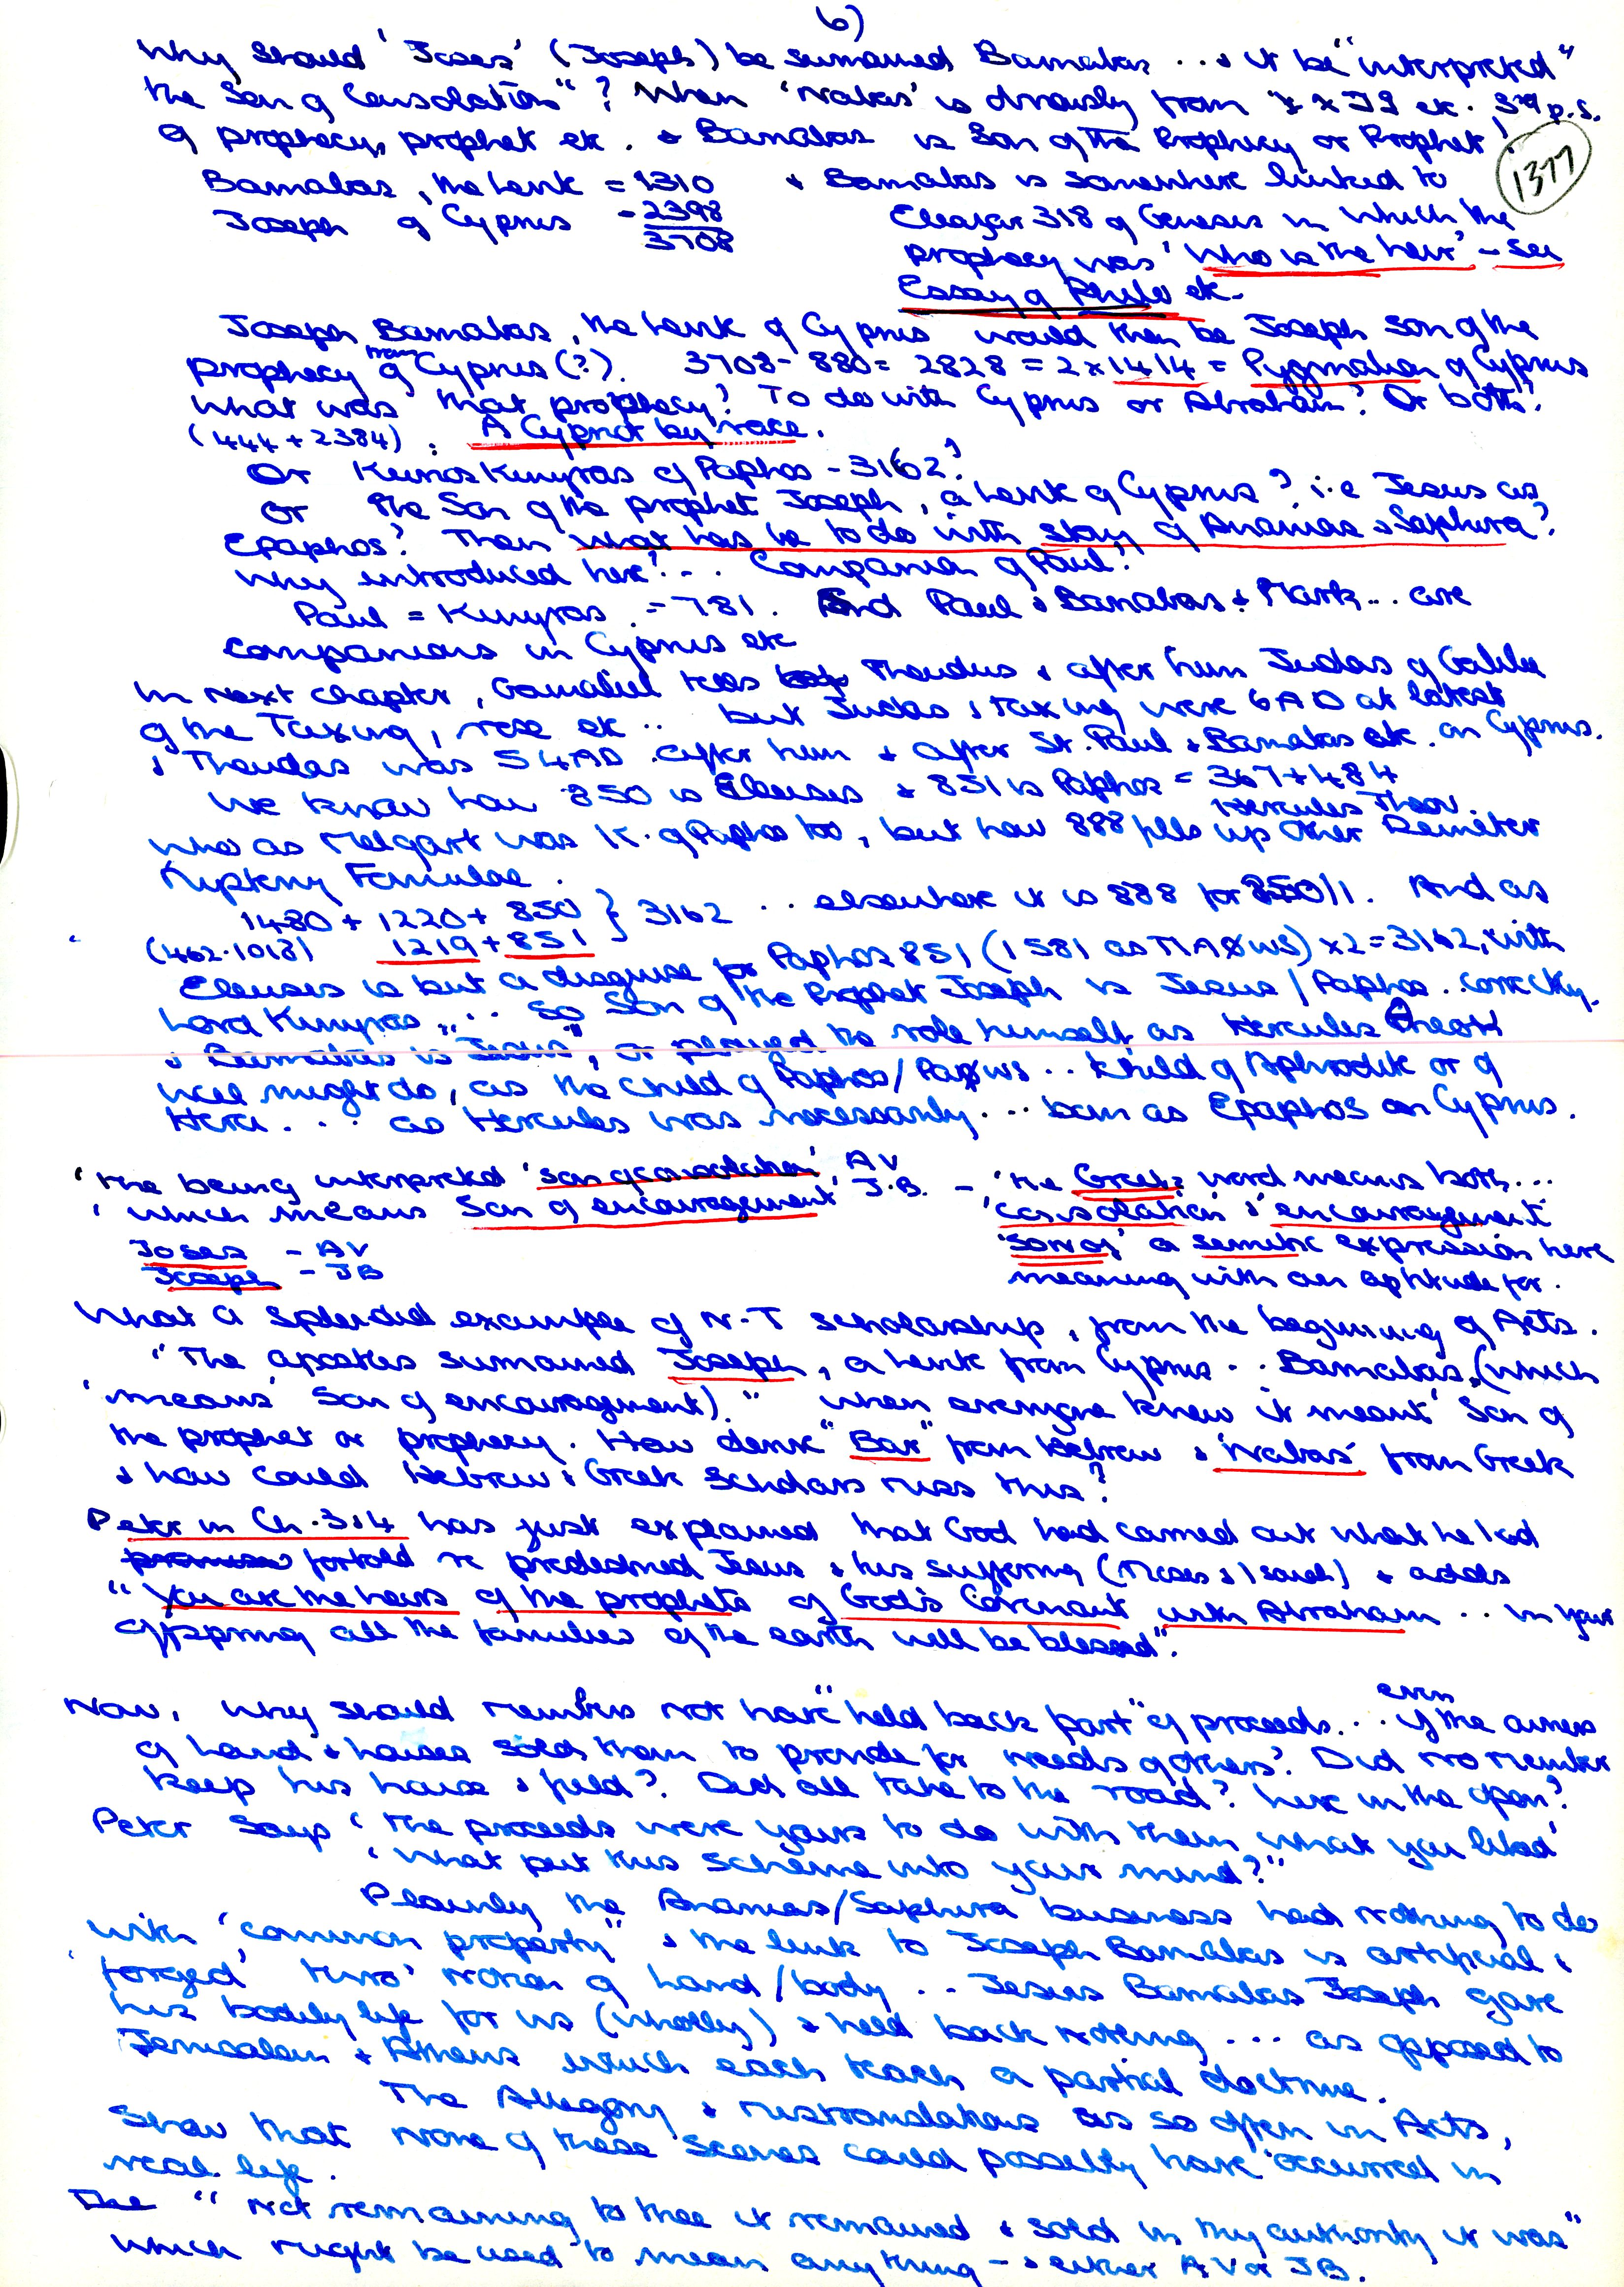 6)
Why should 'Joses' (Joseph) be surnamed Barnabas ... & it be "interpreted"
the Son of Consolation"? When 'Nabas' is obviously from etc. 3rd p.s.
of prophecy, prophet etc. & Barnabas is Son of the Prophecy or Prophet!
1377
Barnabas, the Levite = 1310 & Barnabas is somewhere linked to
Joseph of Cyprus - 2398 Eleazar 318 of Genesis in which the
3708 prophecy was 'Who is the heir' - See
Essay of Philo etc.
Joseph Barnabas, the Levite of Cyprus would then be Joseph Son of the
prophecy from of Cyprus (?). 3708 - 880 = 2828 = 2 x 1414 = Pygmalion of Cyprus
What was that prophecy? To do with Cyprus or Abraham? Or both?
(444 + 2384) : A Cypriot by race.
Or Keinos Kinyras of Paphos - 3162?
or the Son of the prophet Joseph, a Levite of Cyprus? i.e Jesus as
Epaphos? Then what has he to do with story of Ananias & Saphira?
Why introduced here? ... Companion of Paul?
Paul = Kinyras = 781. And Paul & Barnabas & Mark... are
companions in Cyprus etc
In next chapter, Gamaliel tells Theudus & after him Judas of Galilee
of the Taxing, rose etc .. but Judas & taxing were 6 AD at latest
& Theudas was 54 AD after him & after St. Paul & Barnabas etc. on Cyprus.
We know how 850 is Eleuses & 851 is Paphos = 367 + 484
Hercules Theor.
who as Melqart was K. of Paphos too, but how 888 fills up other Demeter
Formulae.
1480 + 1220 + 850 } 3162 .. elsewhere it is 888 for 850/1. And as
(462.1018) 1219 + 851
Eleuses is but a disguise for Paphos 851 (1581 as ΠΑΦως) x 2 = 3162, with
Lord Kinyras .... So Son of the Prophet Joseph is Jesus / Paphos .. correctly.
& Barnabas is "Jesus", or played the role himself, as Hercules
well might do, as the child of Paphos/Paφως .. Child of Aphrodite or of
Hera ... as Hercules was necessarily ... born as Epaphos on Cyprus.
'the being interpreted 'son of consolation' AV - 'the Greek word means both ...
'which means Son of encouragement' J.B. 'consolation' & 'encouragement'
Joses - AV 'Son of' a semitic expression here
Joseph - JB meaning with an aptitude for.
What a splendid example of N-T scholarship, from the beginning of Acts.
"The apostles surnamed Joseph, a Levite from Cyprus .. Barnabas, (which
'means' Son of encouragement)." when everyone knew it meant 'Son of
the prophet or prophecy. How derive "Bar" from Hebrew & 'Nabas' from Greek
& how could Hebrew & Greek Scholars miss this?
Peter in Ch. 3:4 has just explained that God had carried out what he had
promised fortold re predestined Jesus & his suffering (Moses & Isaiah) & adds
"You are the heirs of the prophets of God's Covenant with Abraham .. in your
offspring all the families of the earth will be blessed".
Now, why should members not have "held back part" of proceeds... even if the owners
of land & houses sold them to provide for needs of others? Did no member
keep his house & field? Did all take to the road? live in the open?
Peter says 'the proceeds were yours to do with them what you liked'
'What put this scheme into your mind?"
Plainly the Ananias/Saphira business had nothing to do
with 'common property" & the link to Joseph Barnabas is artificial &
'forged' thro' notion of land/body .. Jesus Barnabas Joseph gave
his bodily life for us (wholly) & held back nothing ... as opposed to
Jerusalem & Athens which each teach a partial doctrine.
The Allegory & mistranslations as so often in Acts,
Show that none of these scenes could possibly have occurred in
real life.
The "not remaining to thee it remained & sold in thy authority it was"
which might be used to mean anything - & either AV or JB.